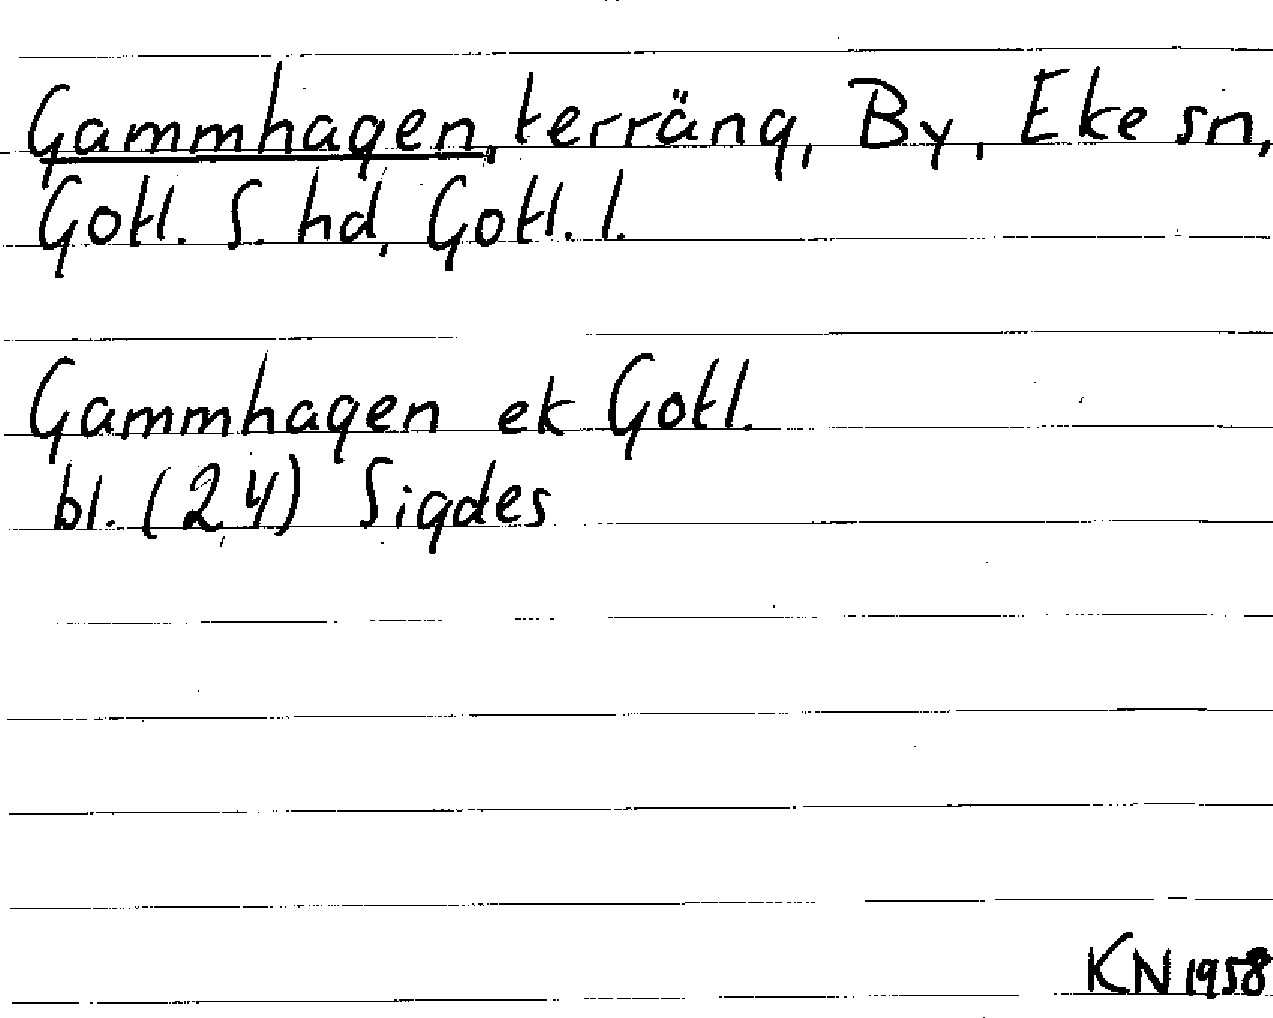 Gammhagen, terräng, By, Eke sn,
Gotl. S. hd, Gotl. l.
Gammhagen ek Gotl.
bl. (2,4) Sigdes
KN 1958